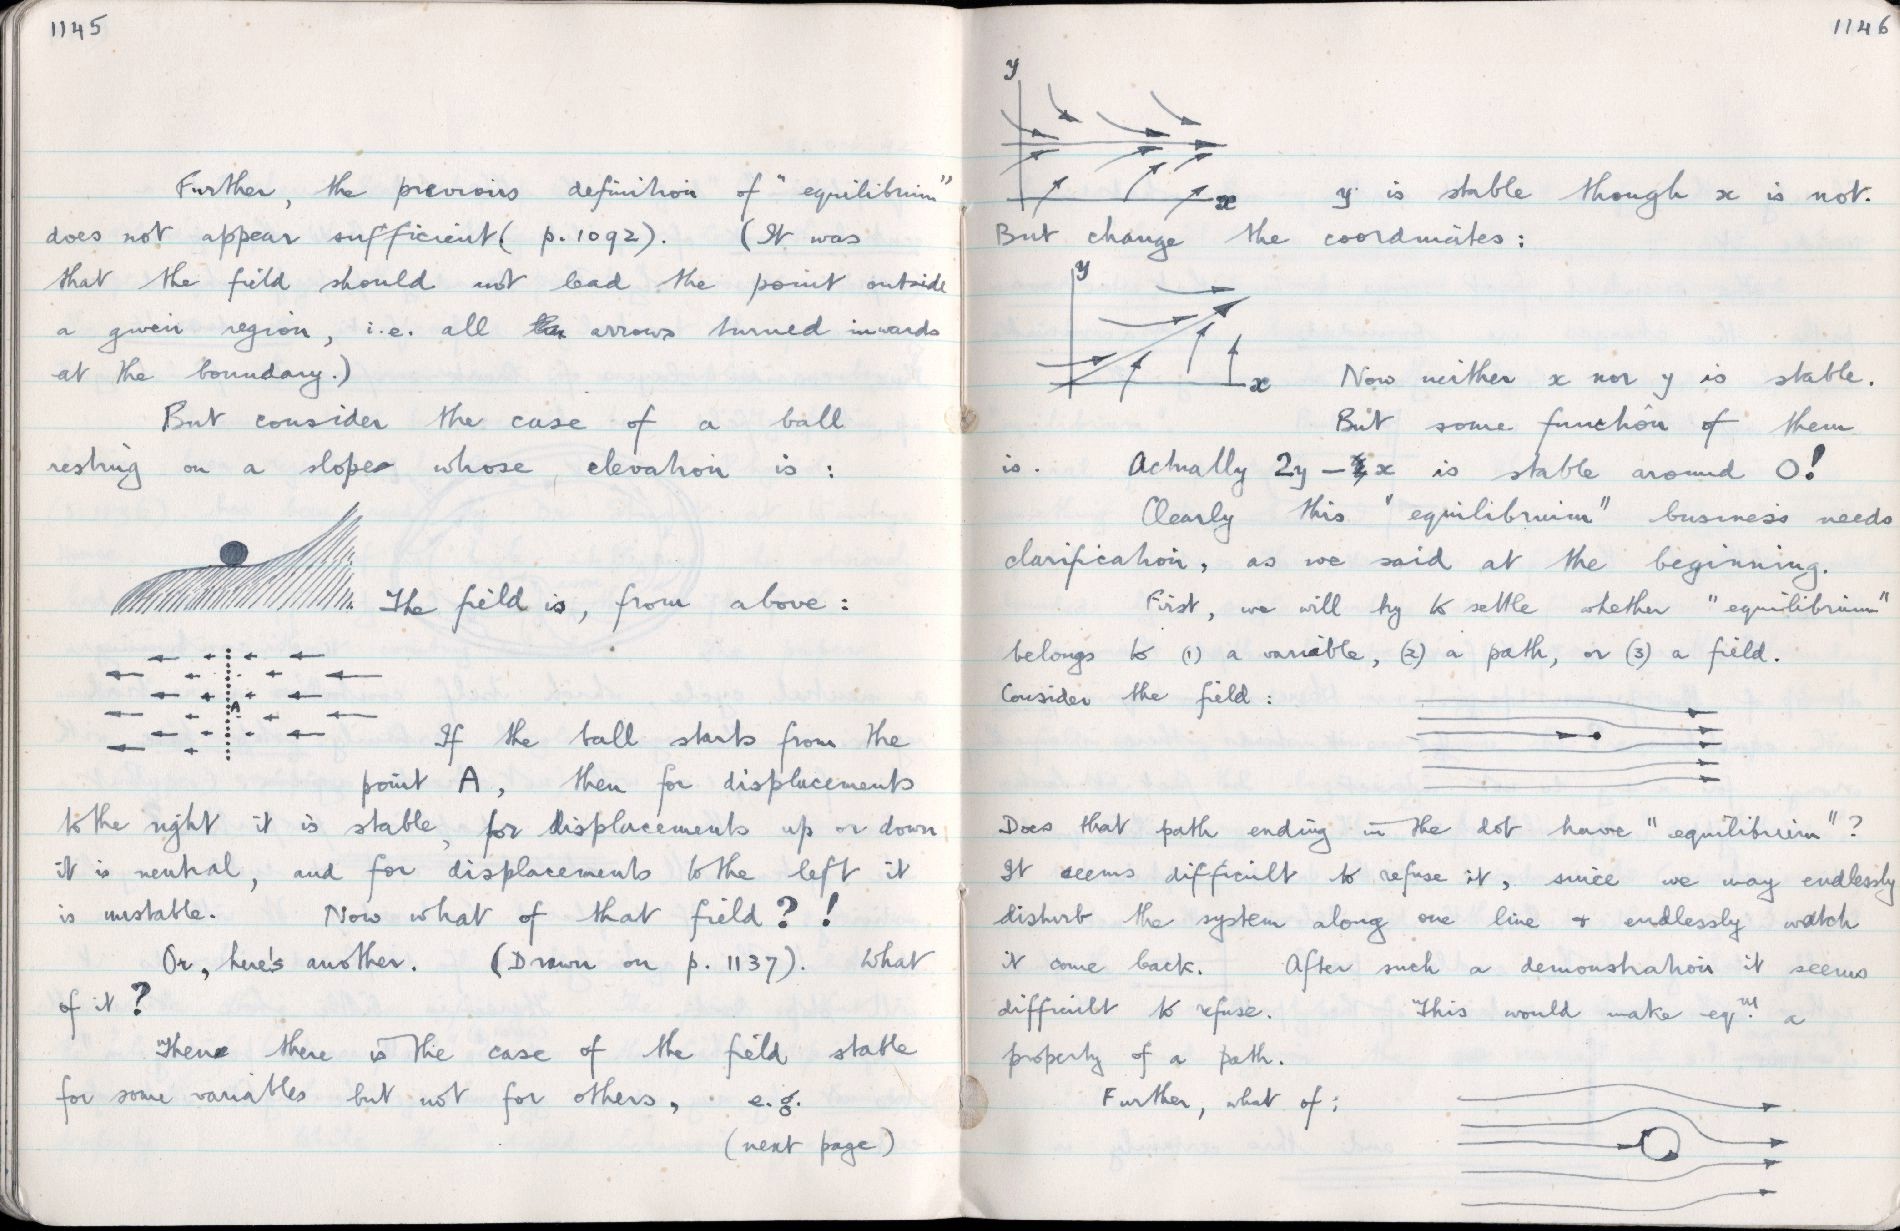 1145
Further, the previous definition of "equilibrium"
does not appear sufficient ( p. 1092). (It was
that the field should not lead the point outside
a given region, i.e. all arrows turned inwards
at the boundary.)
But consider the case of a ball
resting on a slope whose elevation is :
The field is, from above :
A
If the ball starts from the
point A, then for displacements
to the right it is stable, for displacements up or down
it is neutral, and for displacements to the left it
is unstable. Now what of that field ? !
Or, here's another. (Drawn on p. 1137). What
of it ?
Then there is the case of the field stable
for some variables but not for others, e.g.
(next page)
1146
y
x
y is stable though x is not.
But change the coordinates :
y
x
Now neither x nor y is stable.
But some function of them
is. Actually 2y - x is stable around 0!
Clearly this "equilibrium" business needs
clarification, as we said at the beginning.
First, we will try to settle whether "equilibrium"
belongs to (1) a variable, (2) a path, or (3) a field.
Consider the field :
Does that path ending in the dot have "equilibrium" ?
It seems difficult to refuse it, since we may endlessly
disturb the system along one line + endlessly watch
it come back. After such a demonstration it seems
difficult to refuse. This would make eqm. a
property of a path.
Further, what of :